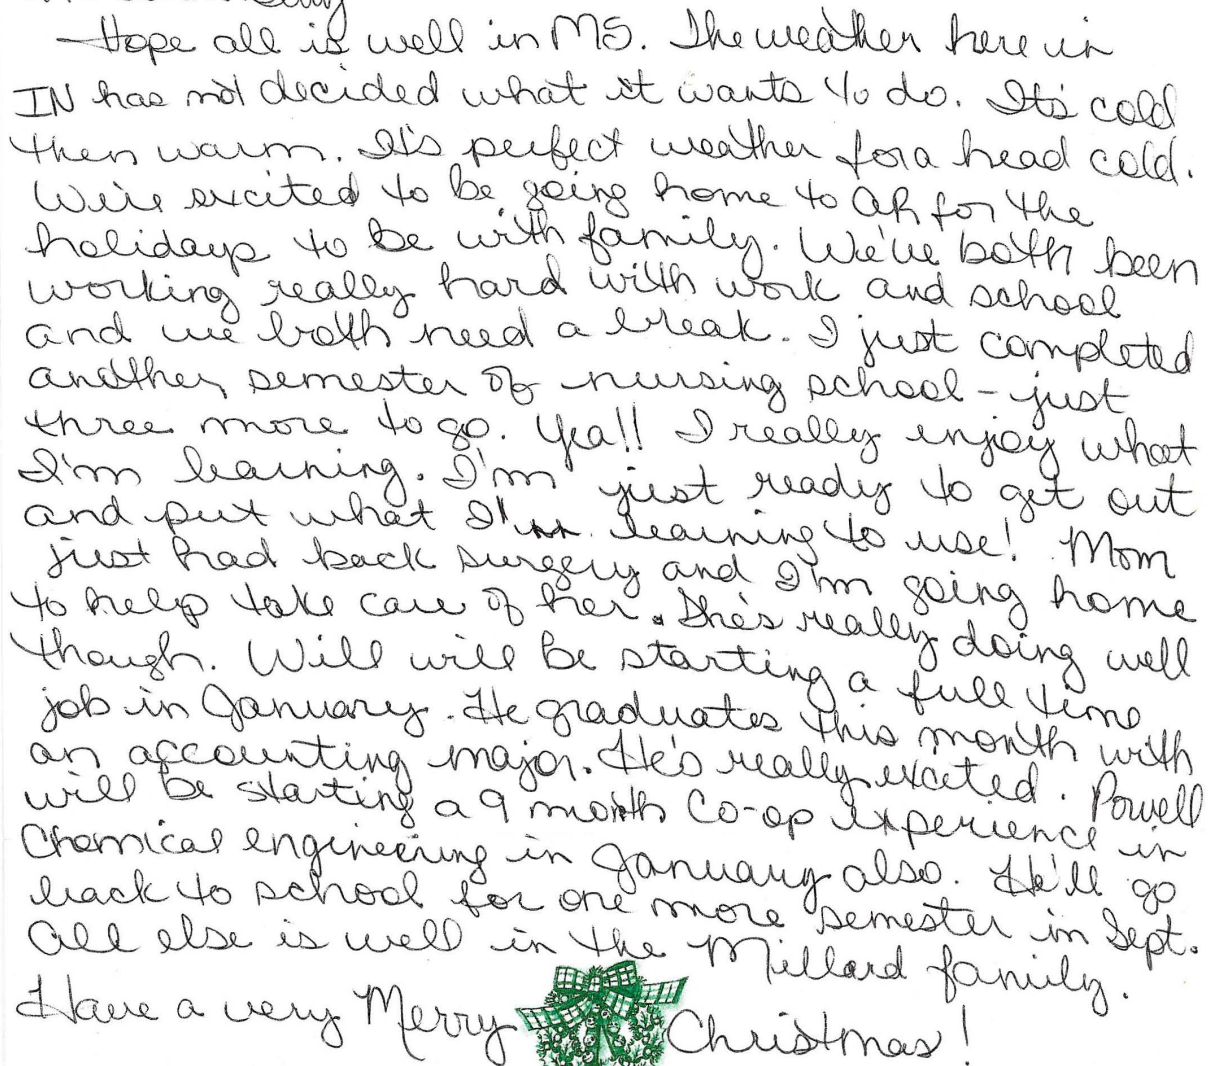 Hope all is well in MS. The weather here in
IN has not decided what it wants to do. It's cold
then warm. It's perfect weather for a head cold.
We're excited to be going home to AR for the
holidays to be with family. We've both been
working really hard with work and school
and we both need a break. I just completed
another semester of nursing school - just
three more to go. Yea!! I really enjoy what
I'm learning. I'm just ready to get out
and put what I'm learning to use! Mom
just had back surgery and I'm going home
to help take care of her. She's really doing well
though. Will will be starting a full time
job in January. He graduates this month with
an accounting major. He's really excited. Powell
will be starting a 9 month Co-op experience in
Chemical engineering in January also. He'll go
back to school for one more semester in Sept.
All else is well in the Millard family.
Have a very Merry Christmas!